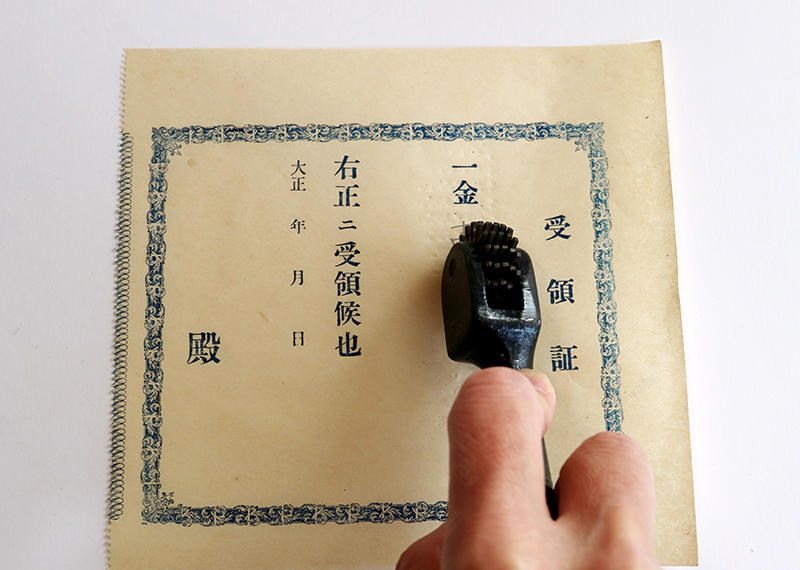 受領証
一金
右正ニ受領候也
大正 年 月 日
殿